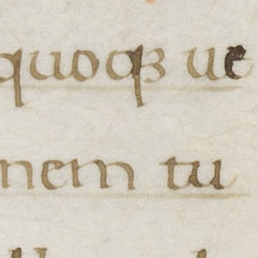 quoqꝫ ue
nem tu